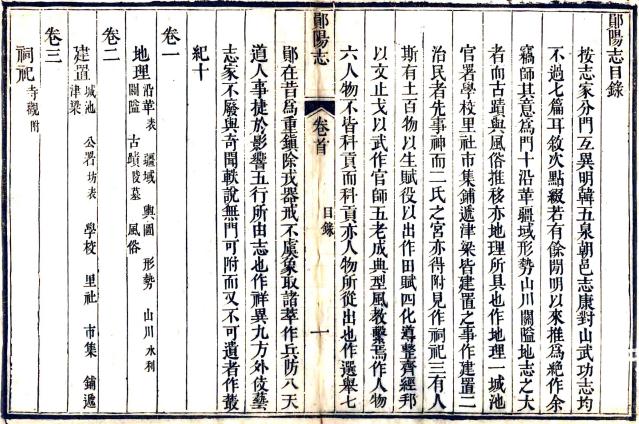 鄖陽志目錄
按志家分門互異明韓五泉朝邑志康對山武功志均
不過七篇耳敘次點綴若有餘閒明以來推爲絶作余
竊師其意爲門十沿革疆域形勢山川關隘地志之大
者而古蹟與風俗推移亦地理所具也作地理一城池
官署學校里社市集鋪遞津梁皆建置之事作建置二
治民者先事神而二氏之宮亦得附見作祠祀三有人
斯有土百物以生賦役以出作田賦四化導整齊經邦
以文止戈以武作官師五老成典型風教繫焉作人物
六人物不皆科貢而科貢亦人物所從出也作選舉七
鄖陽志 卷首 目錄 一
鄖在昔爲重鎮除戎器戒不虞象取諸萃作兵防八天
道人事捷於影響五行所由志也作祥異九方外伎藝
志家不廢與奇聞軼說無門可附而又不可遺者作叢
紀十
卷一
地理 沿革表 疆域 輿圖 形勢 山川 水利
關隘 古蹟 陵墓 風俗
卷二
建置 城池 公署 坊表 學校 里社 市集 鋪遞
津梁
卷三
祠祀 寺觀附